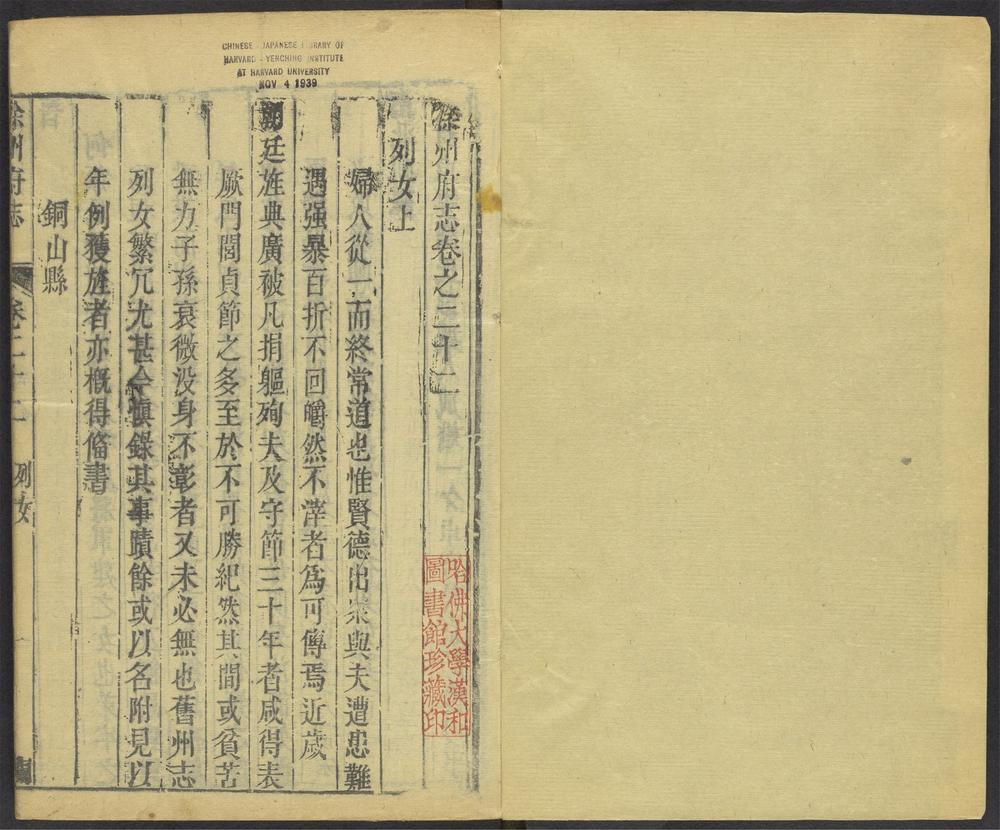 CHINESE - JAPANESE LIBRARY OF
HARVARD - YENCHING INSTITUTE
AT HARVARD UNIVERSITY
NOV 4 1939
徐州府志卷之二十二
列女上
婦人從一而終常道也惟賢德出衆與夫遭患難
遇强暴百折不回皭然不滓者爲可傳焉近歲
朝廷旌典廣被凡捐軀殉夫及守節三十年者咸得表
厥門閭貞節之多至於不可勝紀然其間或貧苦
無力子孫衰微没身不彰者又未必無也舊州志
列女繁冗尤甚今愼錄其事蹟餘或以名附見以
年例獲旌者亦概得偹書
銅山縣
徐州府志
卷二十二
列女
一
哈佛大學漢和
圖書館珍藏印